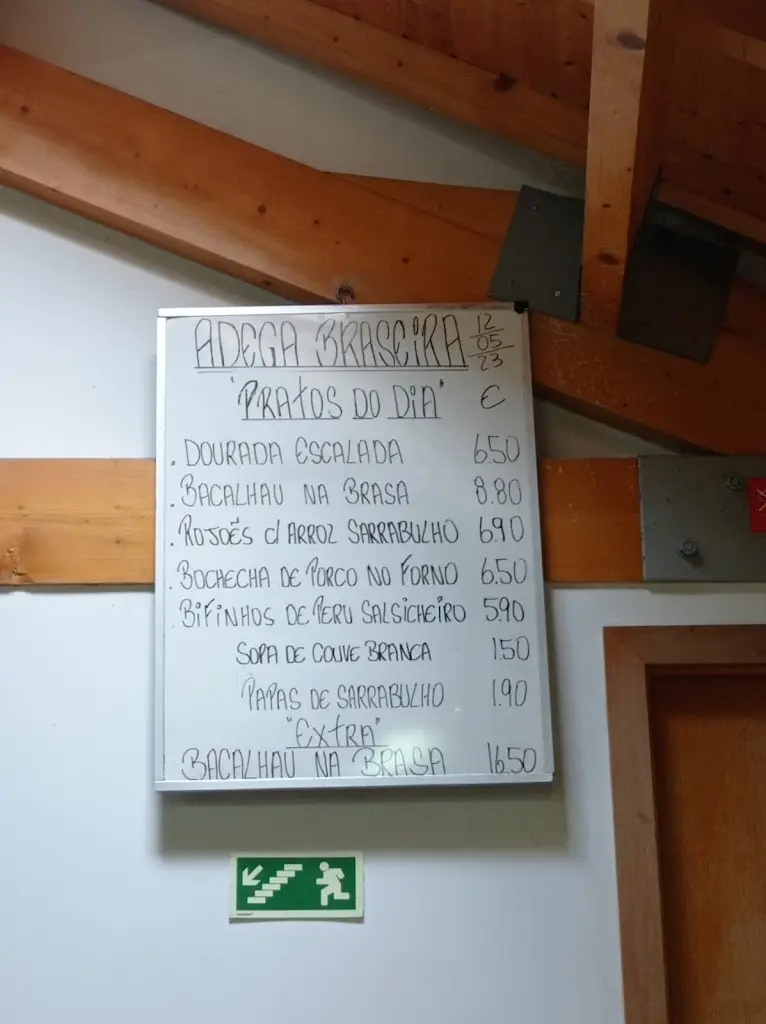 ADEGA BRASEIRA 12/05/23
"PRATOS DO DIA" €
. DOURADA ESCALADA 6.50
. BACALHAU NA BRASA 8.80
. ROJOËS c/ ARROZ SARRABULHO 6.90
. BOCHECHA DE PORCO NO FORNO 6.50
. BIFINHOS DE PERU SALSICHEIRO 5.90
SOPA DE COUVE BRANCA 1.50
PAPAS DE SARRABULHO 1.90
"EXTRA"
BACALHAU NA BRASA 16.50